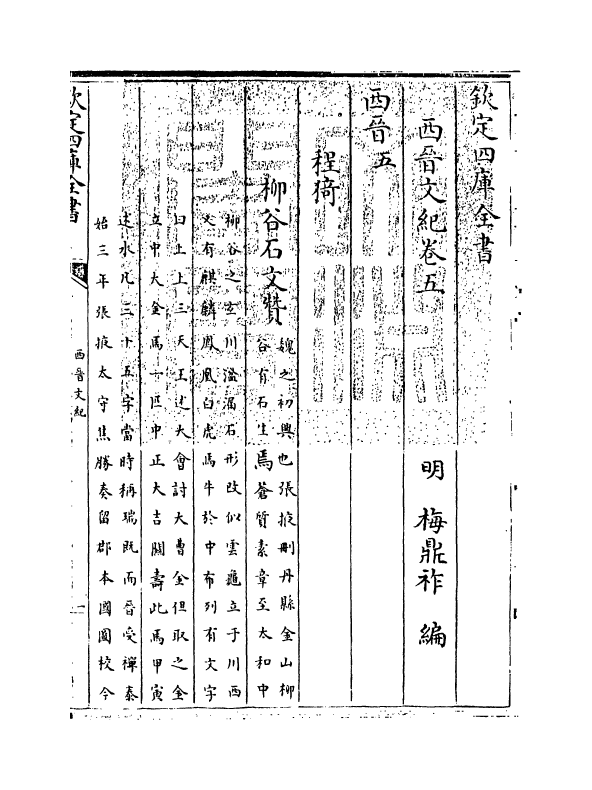 欽定四庫全書
西晉文紀卷五
明 梅鼎祚 編
西晉五
程猗
柳谷石文贊
魏之初興也張掖刪丹縣金山柳
谷有石生焉蒼質素章至太和中
柳谷之玄川溢涌石形改似雲龜立于川西
又有麒麟鳳凰白虎馬牛於中布列有文字
曰上上三天王述大會討大曹金但取之金
立中大金馬一匹中正大吉關壽此馬甲寅
述水凡三十五字當時稱瑞既而晉受禪泰
始三年張掖太守焦勝奏留郡本國圖校今
欽定四庫全書
西晉文紀
一